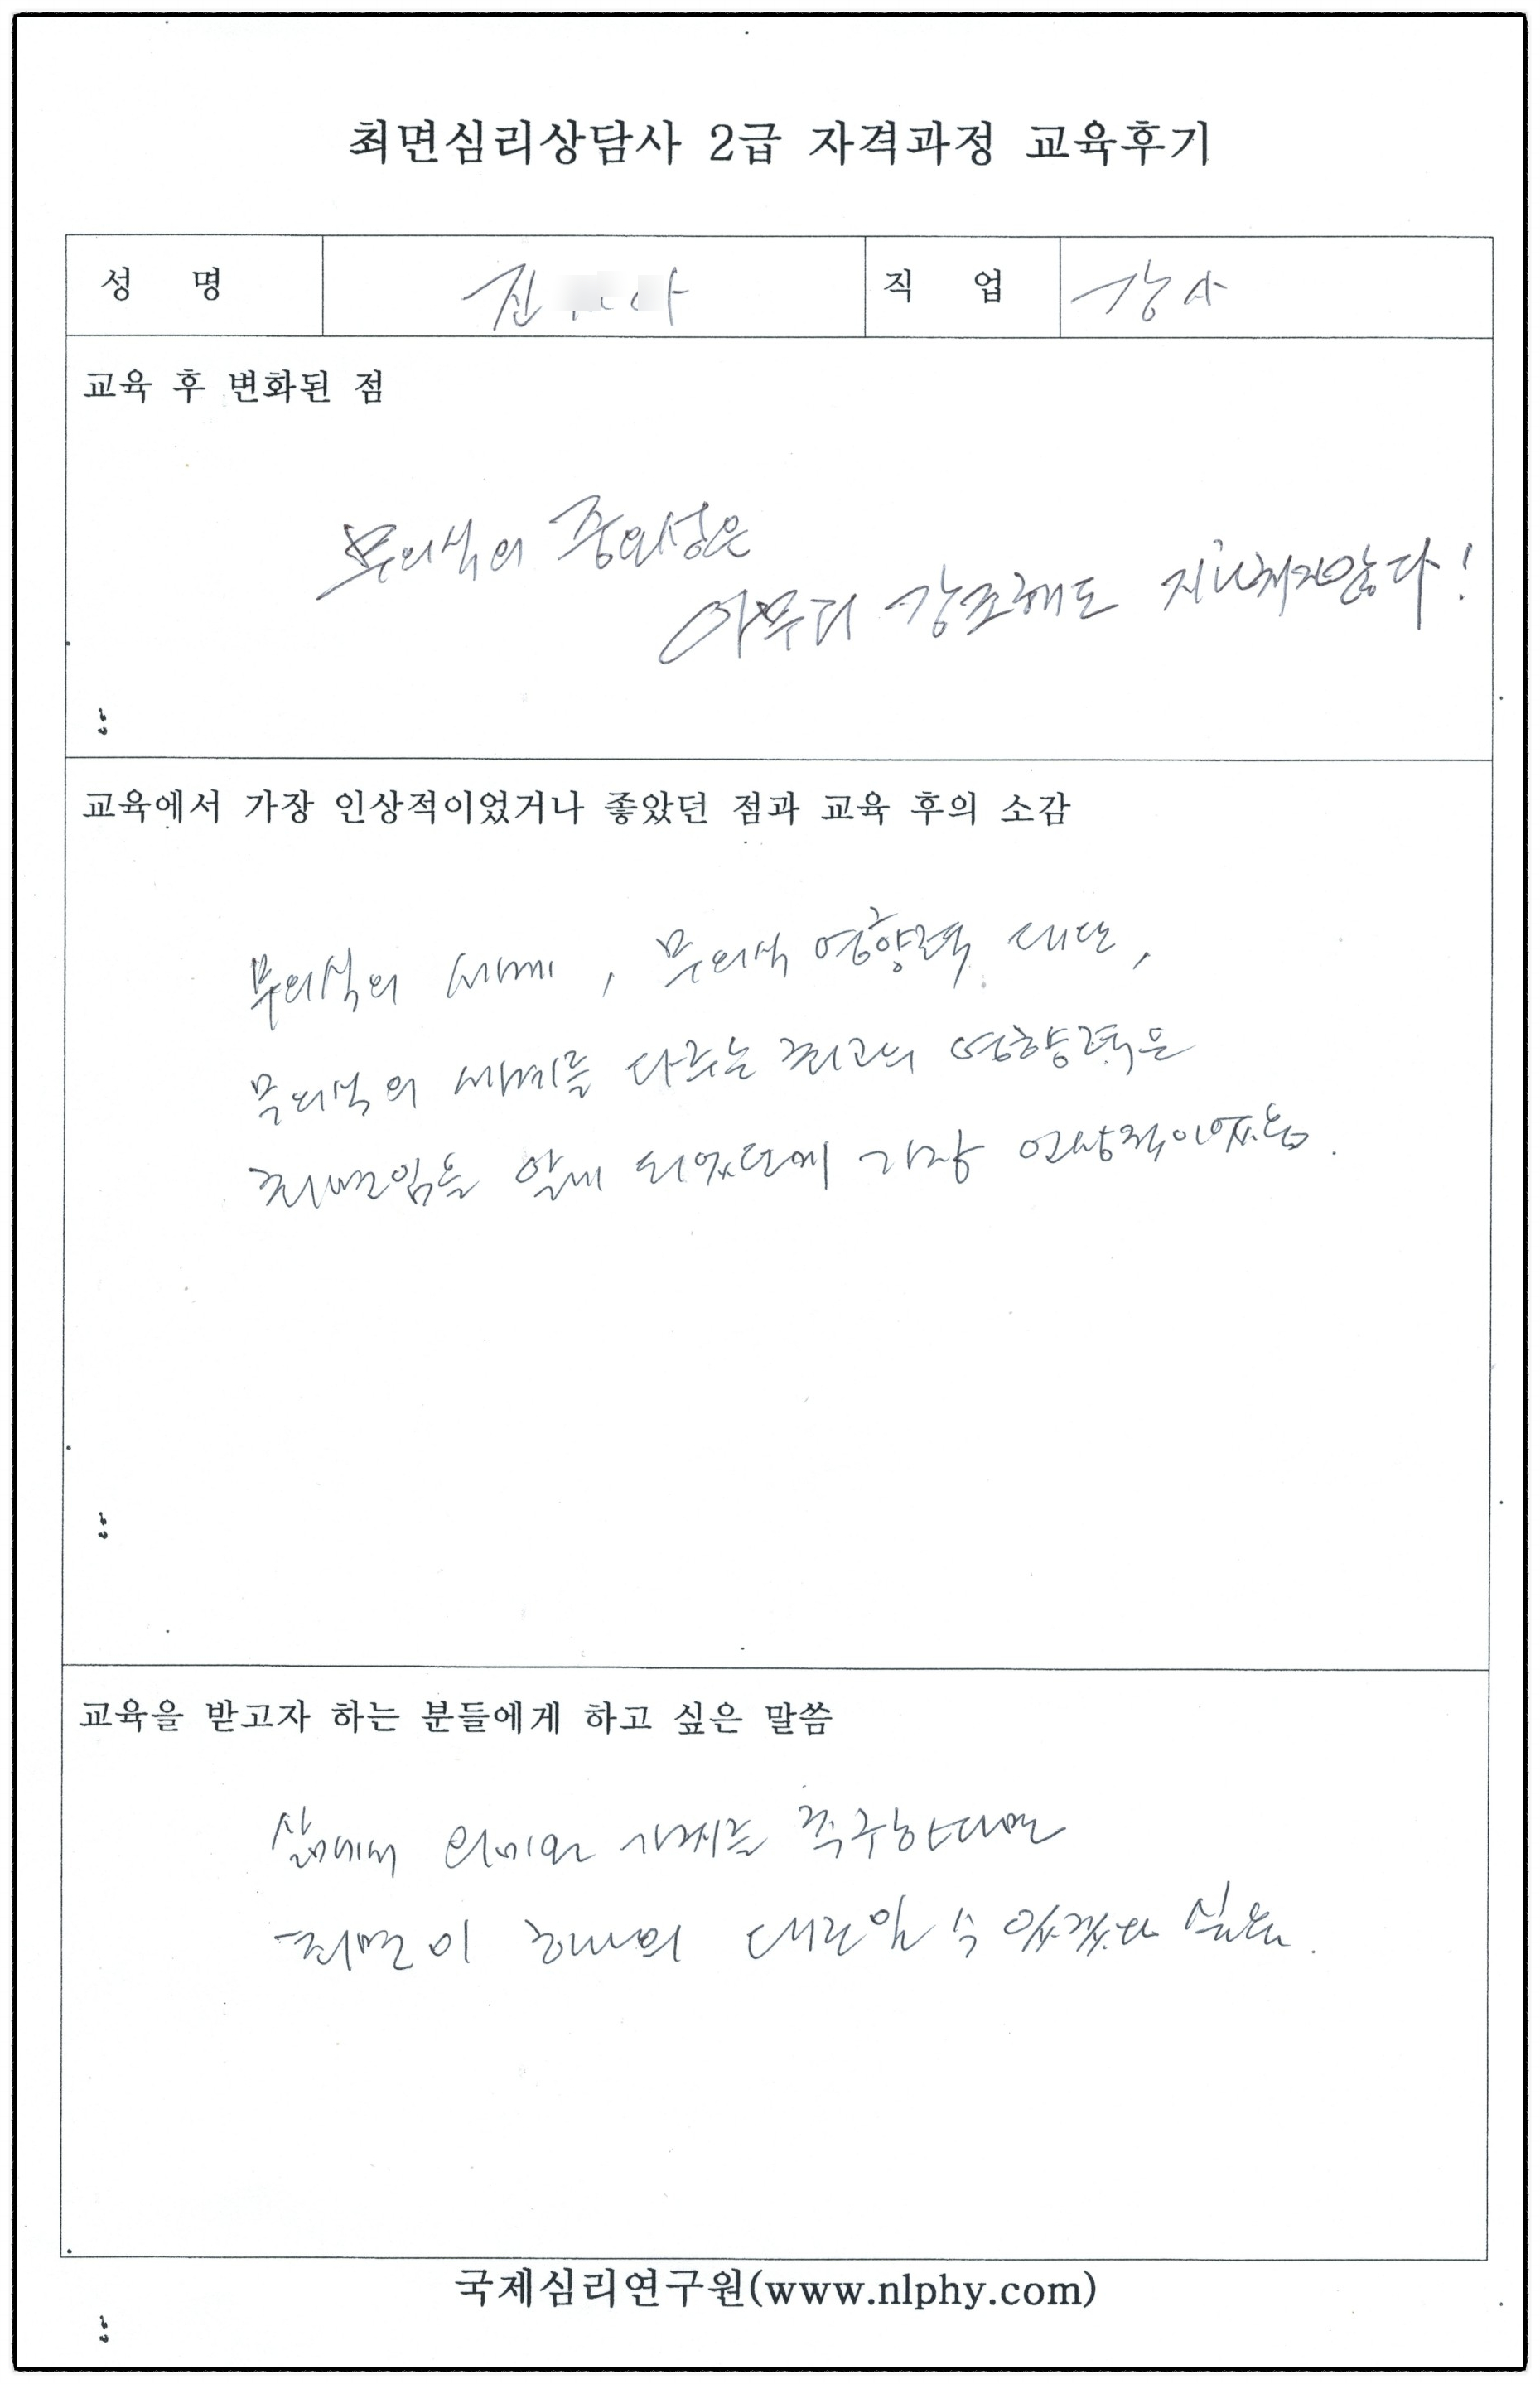 최면심리상담사 2급 자격과정 교육후기
성 명 진 직 업 강사
교육 후 변화된 점
무의식의 중요성은
아무리 강조해도 지나치지않다!
교육에서 가장 인상적이었거나 좋았던 점과 교육 후의 소감
무의식의 세계, 무의식 영향력 대단,
무의식의 세계를 다루는 최고의 영향력은
최면임을 알게 되었던게 가장 인상적이었음.
교육을 받고자 하는 분들에게 하고 싶은 말씀
삶에서 의미와 가치를 추구한다면
최면이 하나의 대안일 수 있겠다 싶음.
국제심리연구원(www.nlphy.com)